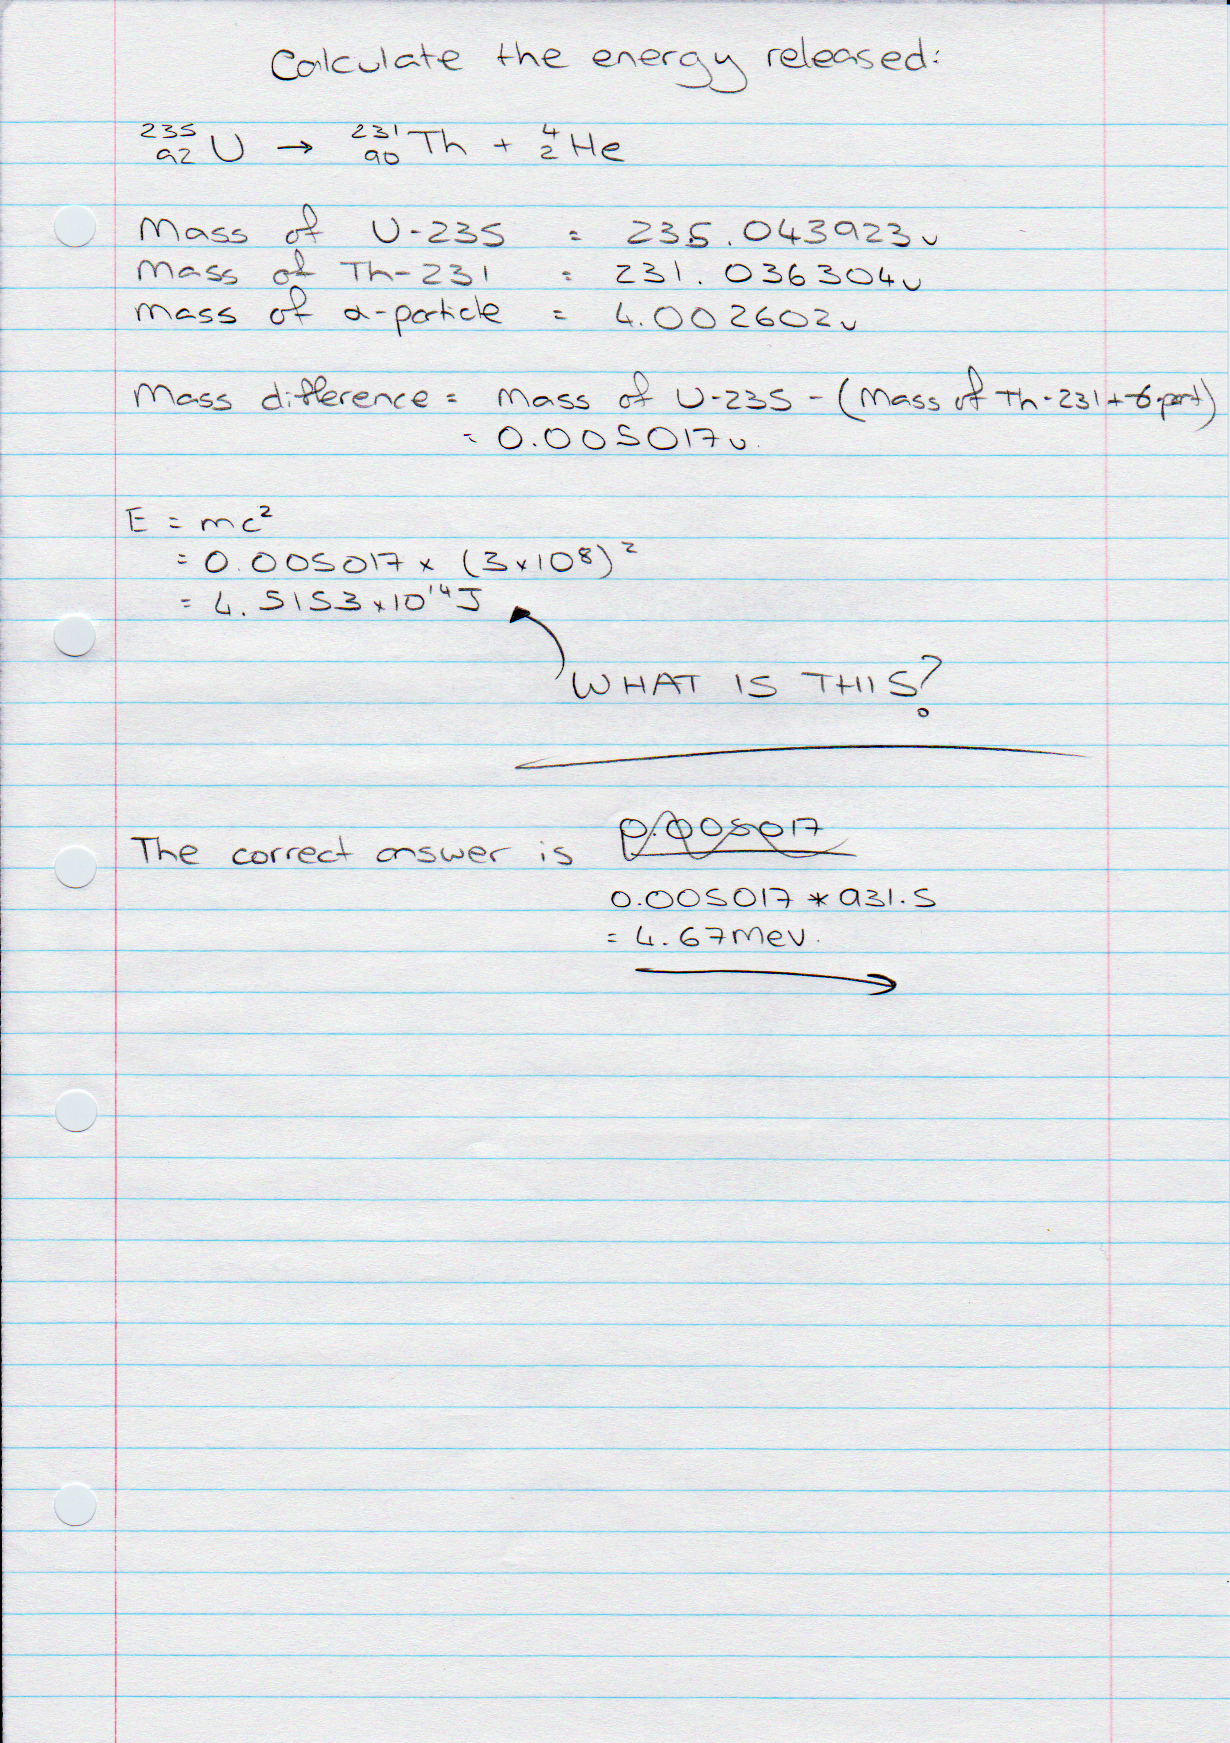 Calculate the energy released:
²³⁵₉₂U → ²³¹₉₀Th + ⁴₂He
Mass of U-235 = 235.043923u
Mass of Th-231 = 231.036304u
Mass of α-particle = 4.002602u
Mass difference = Mass of U-235 - (Mass of Th-231 +
= 0.005017u.
E = mc²
= 0.005017 × (3×10⁸)²
= 4.5153×10¹⁴J
WHAT IS THIS?
0.005017
The correct answer is
0.005017 * 931.5
= 4.67mev.